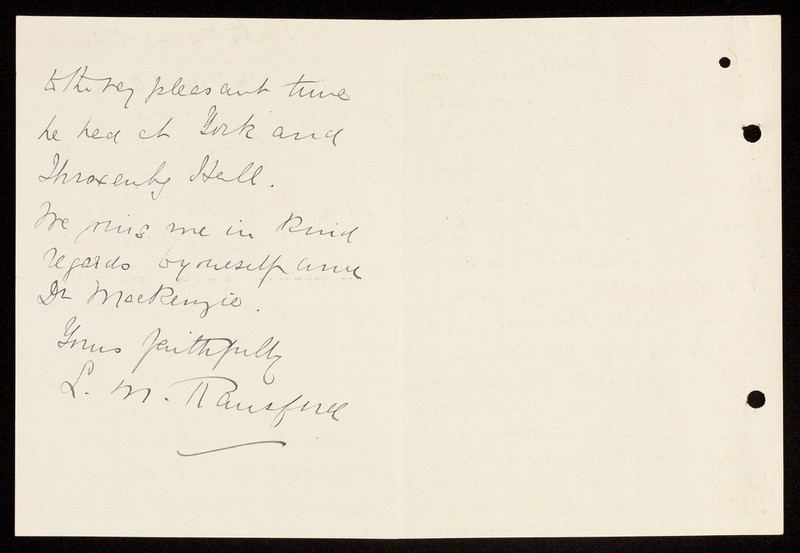 to the very pleasant time
he had at York and
Throxenby Hall.
He joins me in kind
regards to yourself and
Dr Mackenzie.
Yours faithfully
L. M. Ransford